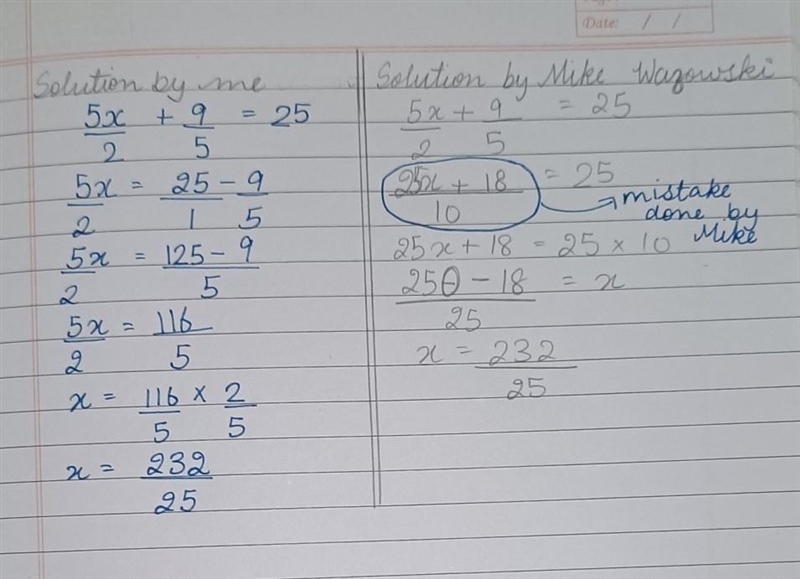 Date: / /
Solution by me
5x/2 + 9/5 = 25
5x/2 = 25/1 - 9/5
5x/2 = 125-9/5
5x/2 = 116/5
x = 116/5 x 2/5
x = 232/25
Solution by Mike Wazowski
5x/2 + 9/5 = 25
25x + 18/10 = 25
mistake done by Mike
25x + 18 = 25 x 10
250 - 18/25 = x
x = 232/25